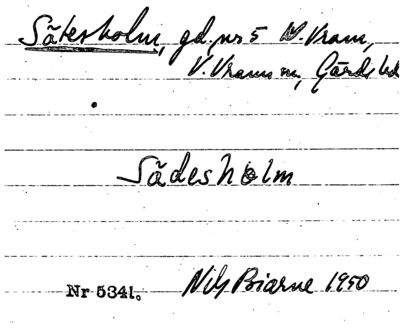 Sätesholm, gd nr 5 N. Vram,
V. Vrams sn, Gärds hd
Sädesholm
Nr 5341. Nils Bjarne 1950